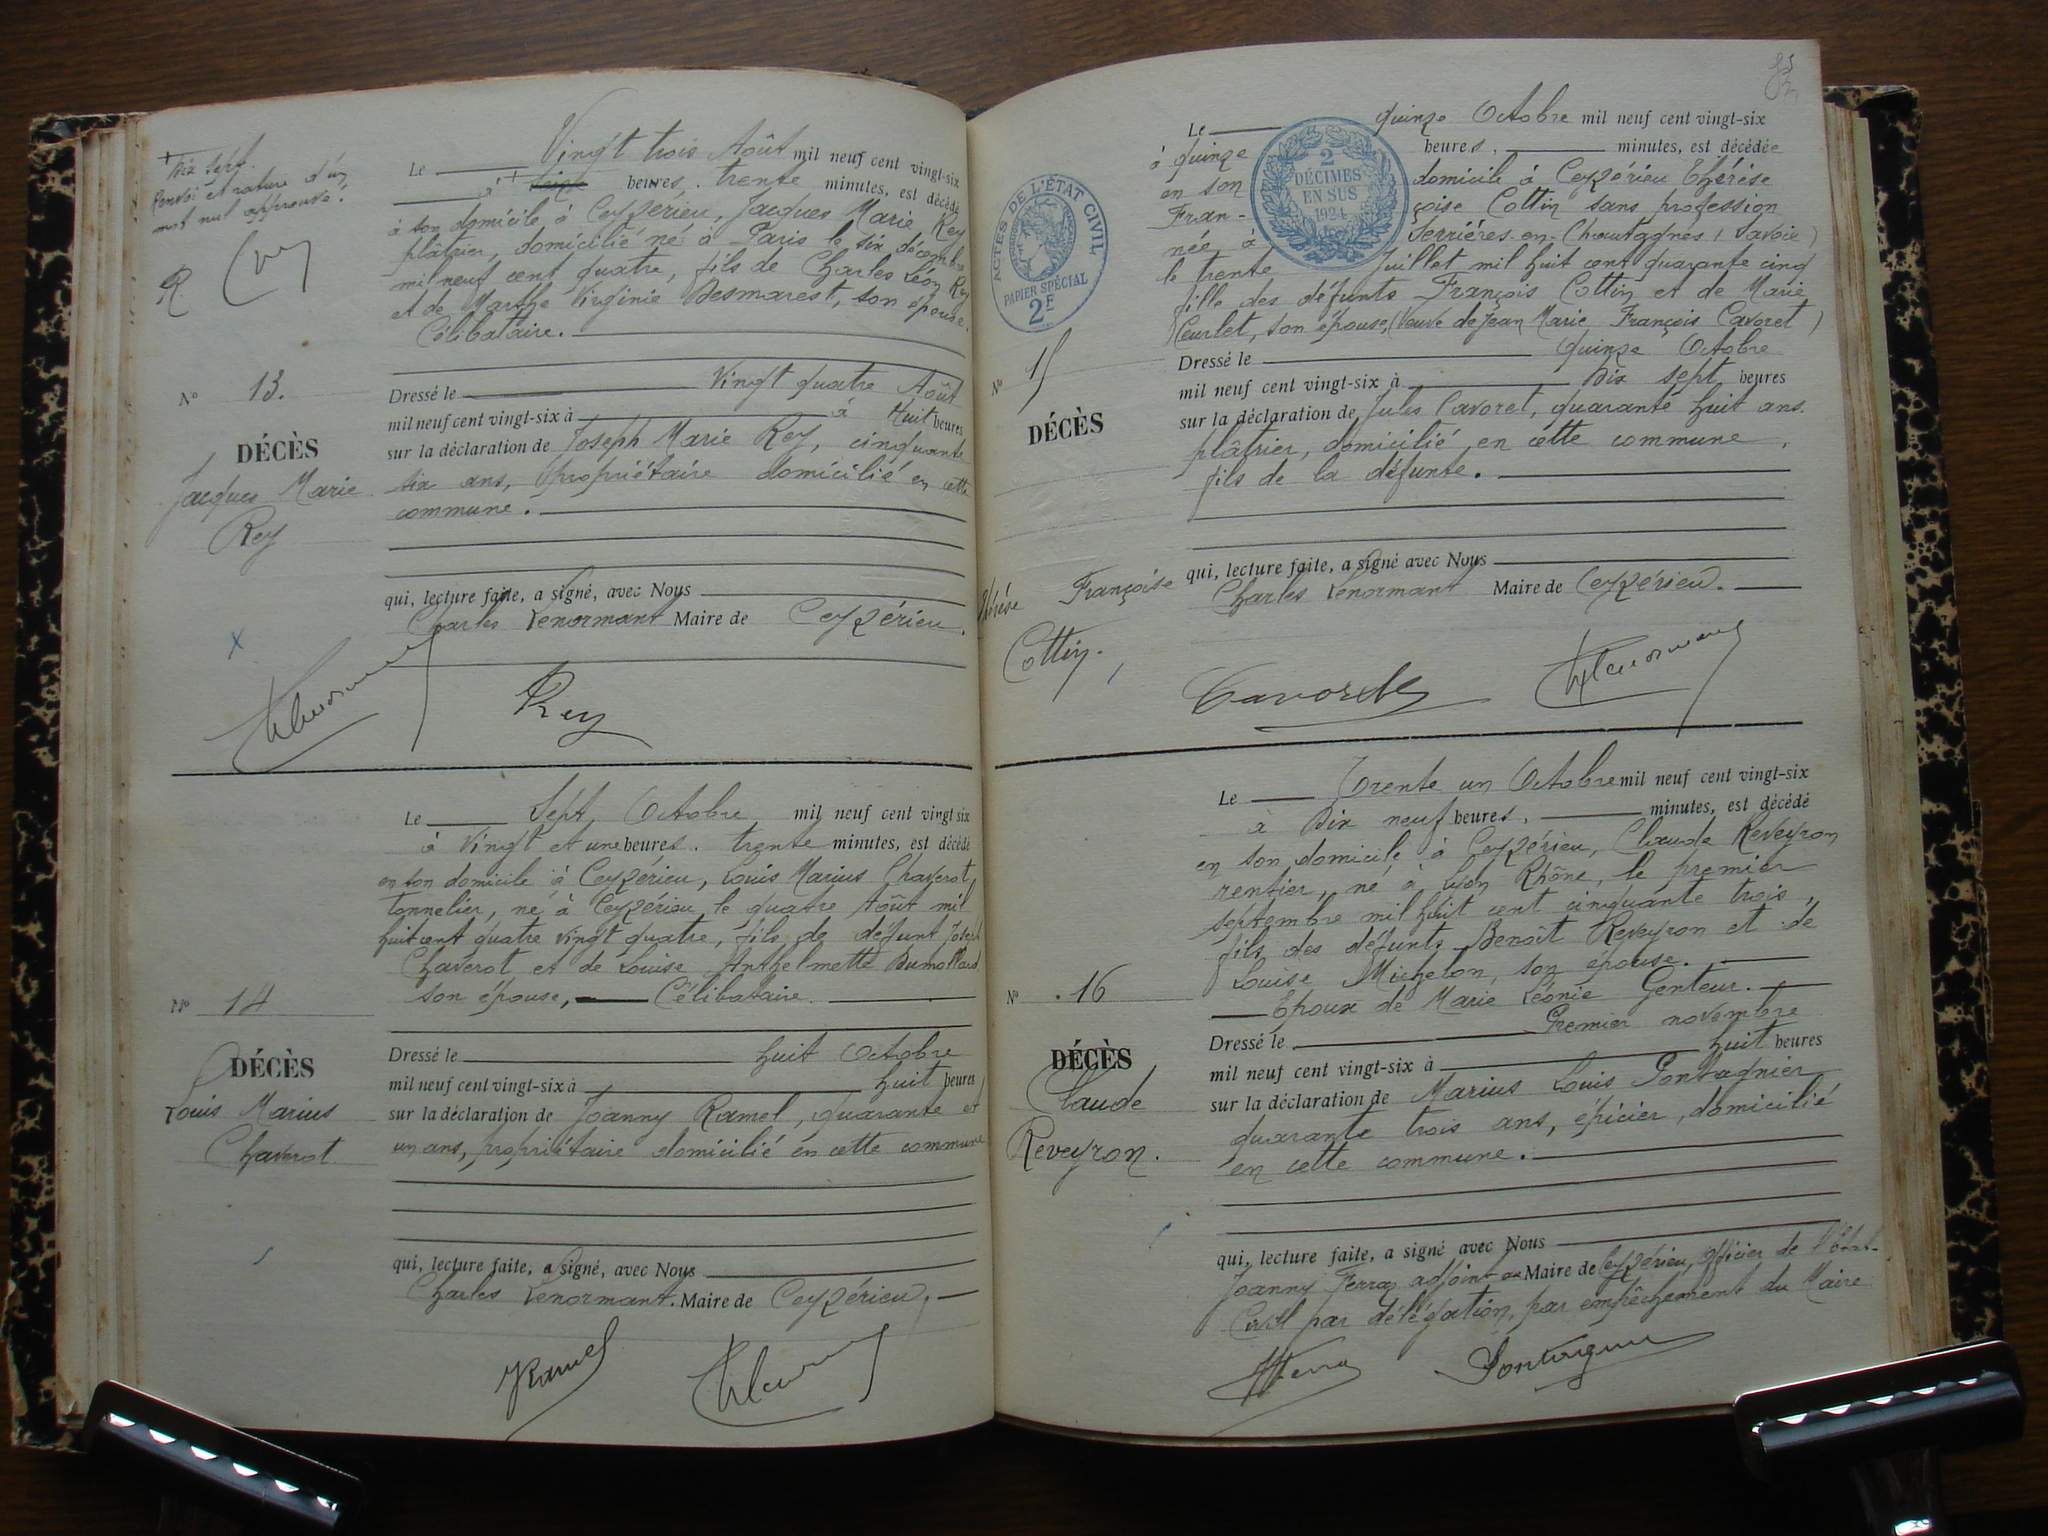 + Dix sept.
Renvoi et rature d'un
mot nul approuvé.
R
Le Vingt trois Août mil neuf cent vingt-six
à + seize heures. trente minutes, est décédé
à son domicile à Ceyzérieu, Jacques Marie Rey
plâtrier, domicilié né à Paris le six décembre
mil neuf cent quatre, fils de Charles Léon Rey
et de Marthe Virginie Desmarest, son épouse.
Célibataire.
N° 13.
DÉCÈS
Jacques Marie
Rey
Dressé le Vingt quatre Août
mil neuf cent vingt-six à à Huit heures
sur la déclaration de Joseph Marie Rey, cinquante
six ans, propriétaire domicilié en cette
commune.
qui, lecture faite, a signé, avec Nous
Charles Lenormant Maire de Ceyzérieu.
Rey
Le Sept Octobre mil neuf cent vingt six
à Vingt et une heures. trente minutes, est décédé
en son domicile à Ceyzérieu, Louis Marius Chaverot,
tonnelier, né à Ceyzérieu le quatre Août mil
huit cent quatre vingt quatre, fils de défunt Joseph
Chaverot et de Louise Anthelmette Dumollard
son épouse, Célibataire.
N° 14
DÉCÈS
Louis Marius
Chaverot
Dressé le huit Octobre
mil neuf cent vingt-six à huit heures
sur la déclaration de Joanny Ramel, quarante et
un ans, propriétaire domicilié en cette commune
qui, lecture faite, a signé, avec Nous
Charles Lenormant. Maire de Ceyzérieu.
JRamel
ACTES DE L'ÉTAT CIVIL
PAPIER SPÉCIAL
2F
2
DÉCIMES
EN SUS
1924
Le quinze Octobre mil neuf cent vingt-six
à quinze heures. minutes, est décédée
en son domicile à Ceyzérieu Thérèse
Fran- çoise Cottin sans profession
née à Serrières-en-Chautagnes (Savoie)
le trente Juillet mil huit cent quarante cinq
fille des défunts François Cottin et de Marie
son épouse, (Veuve de Jean Marie François Cavoret)
N° 15
DÉCÈS
Thérèse Françoise
Cottin.
Dressé le quinze Octobre
mil neuf cent vingt-six à Dix sept heures
sur la déclaration de Jules Cavoret, quarante huit ans.
plâtrier, domicilié en cette commune,
fils de la défunte.
qui, lecture faite, a signé avec Nous
Charles Lenormant Maire de Ceyzérieu.
Cavoret
Le Trente un Octobre mil neuf cent vingt-six
à Dix neuf heures. minutes, est décédé
en son domicile à Ceyzérieu, Claude Reveyron
rentier, né à Lyon Rhône, le premier
septembre mil huit cent cinquante trois,
fils des défunts Benoît Reveyron et de
Louise Michelon, son épouse.
Epoux de Marie Léonie Genteur.
N° 16
DÉCÈS
Claude
Reveyron.
Dressé le Premier novembre
mil neuf cent vingt-six à huit heures
sur la déclaration de Marius Louis Pontagnier
quarante trois ans, épicier, domicilié
en cette commune.
qui, lecture faite, a signé avec Nous
Joanny Ferraz adjoint au Maire de Ceyzérieu, officier de l'état-
Civil par délégation, par empêchement du Maire